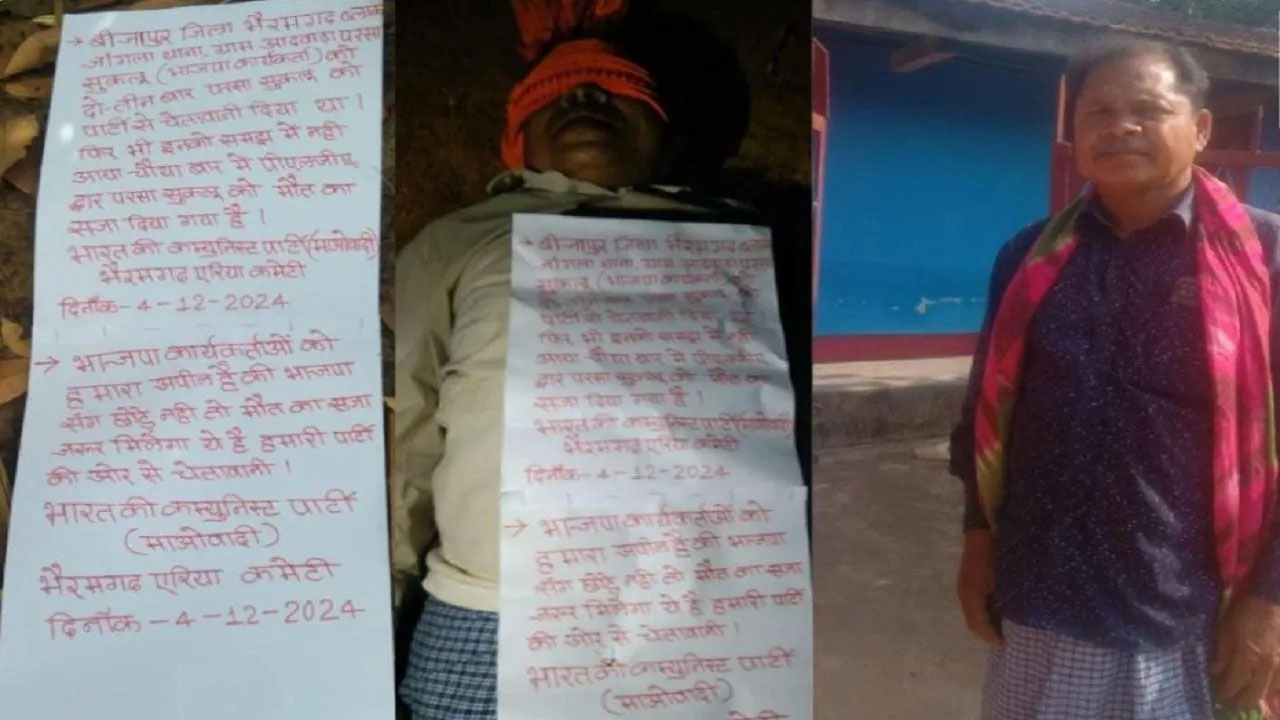 → बीजापुर जिला भैरमगढ़ ब्लाक
जांगला थाना, ग्राम आदवाड़ा परसा
सुकलू (भाजपा कार्यकर्ता) को
दो-तीन बार परसा सुकलू को
पार्टी से चेतावानी दिया था।
फिर भी इनको समझ में नही
आया चौथा बार में पीएलजीए
द्वार परसा सुकलू को मौत का
सजा दिया गया है।
भारत की कम्युनिस्ट पार्टी (माओवादी)
भैरमगढ़ एरिया कमेटी
दिनाँक-4-12-2024
→ भाजपा कार्यकर्ताओं को
हमारा अपील है की भाजपा
संग छोड़ू नही तो मौत का सजा
जरूर मिलेगा ये है हमारी पार्टी
की ओर से चेतावानी।
भारत की कम्युनिस्ट पार्टी
(माओवादी)
भैरमगढ़ एरिया कमेटी
दिनाँक-4-12-2024
→ बीजापुर जिला भैरमगढ़ ब्लाक
जांगला थाना, ग्राम आदवाड़ा परसा
सुकलू (भाजपा कार्यकर्ता) को
दो-तीन बार परसा सुकलू को
पार्टी से चेतावानी दिया था
फिर भी इनको समझ में नही
आया चौथा बार में पीएलजीए
द्वार परसा सुकलू को मौत का
सजा दिया गया है।
भारत की कम्युनिस्ट पार्टी (माओवादी)
भैरमगढ़ एरिया कमेटी
दिनाँक-4-12-2024
→ भाजपा कार्यकर्ताओं को
हमारा अपील है की भाजपा
संग छोड़ू नही तो मौत का सजा
जरूर मिलेगा ये है हमारी पार्टी
की ओर से चेतावानी।
भारत की कम्युनिस्ट पार्टी
(माओवादी)